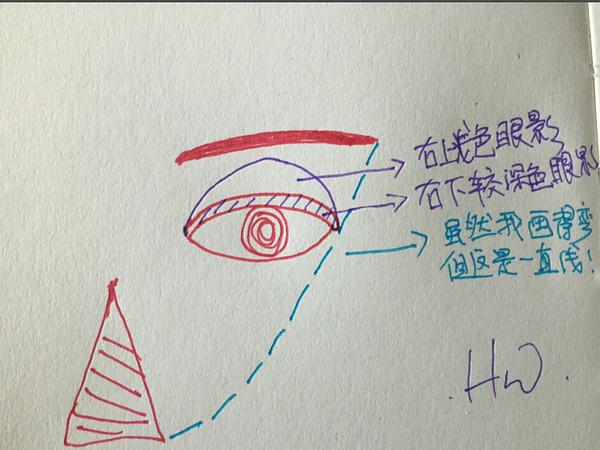 右上浅色眼影
右下较深色眼影
虽然我画得弯
但这是一直线!
HW.